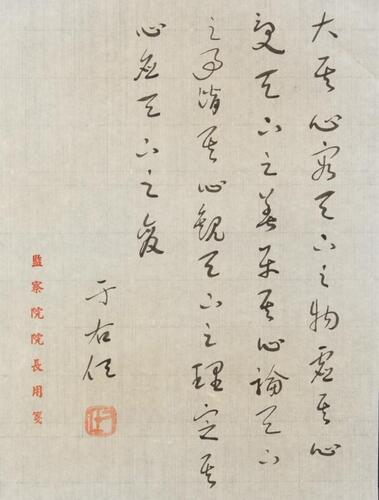 大其心容天下之物虛其心
受天下之善平其心論天下
之事潛其心觀天下之理定其
心應天下之變
于右任
監察院院長用箋